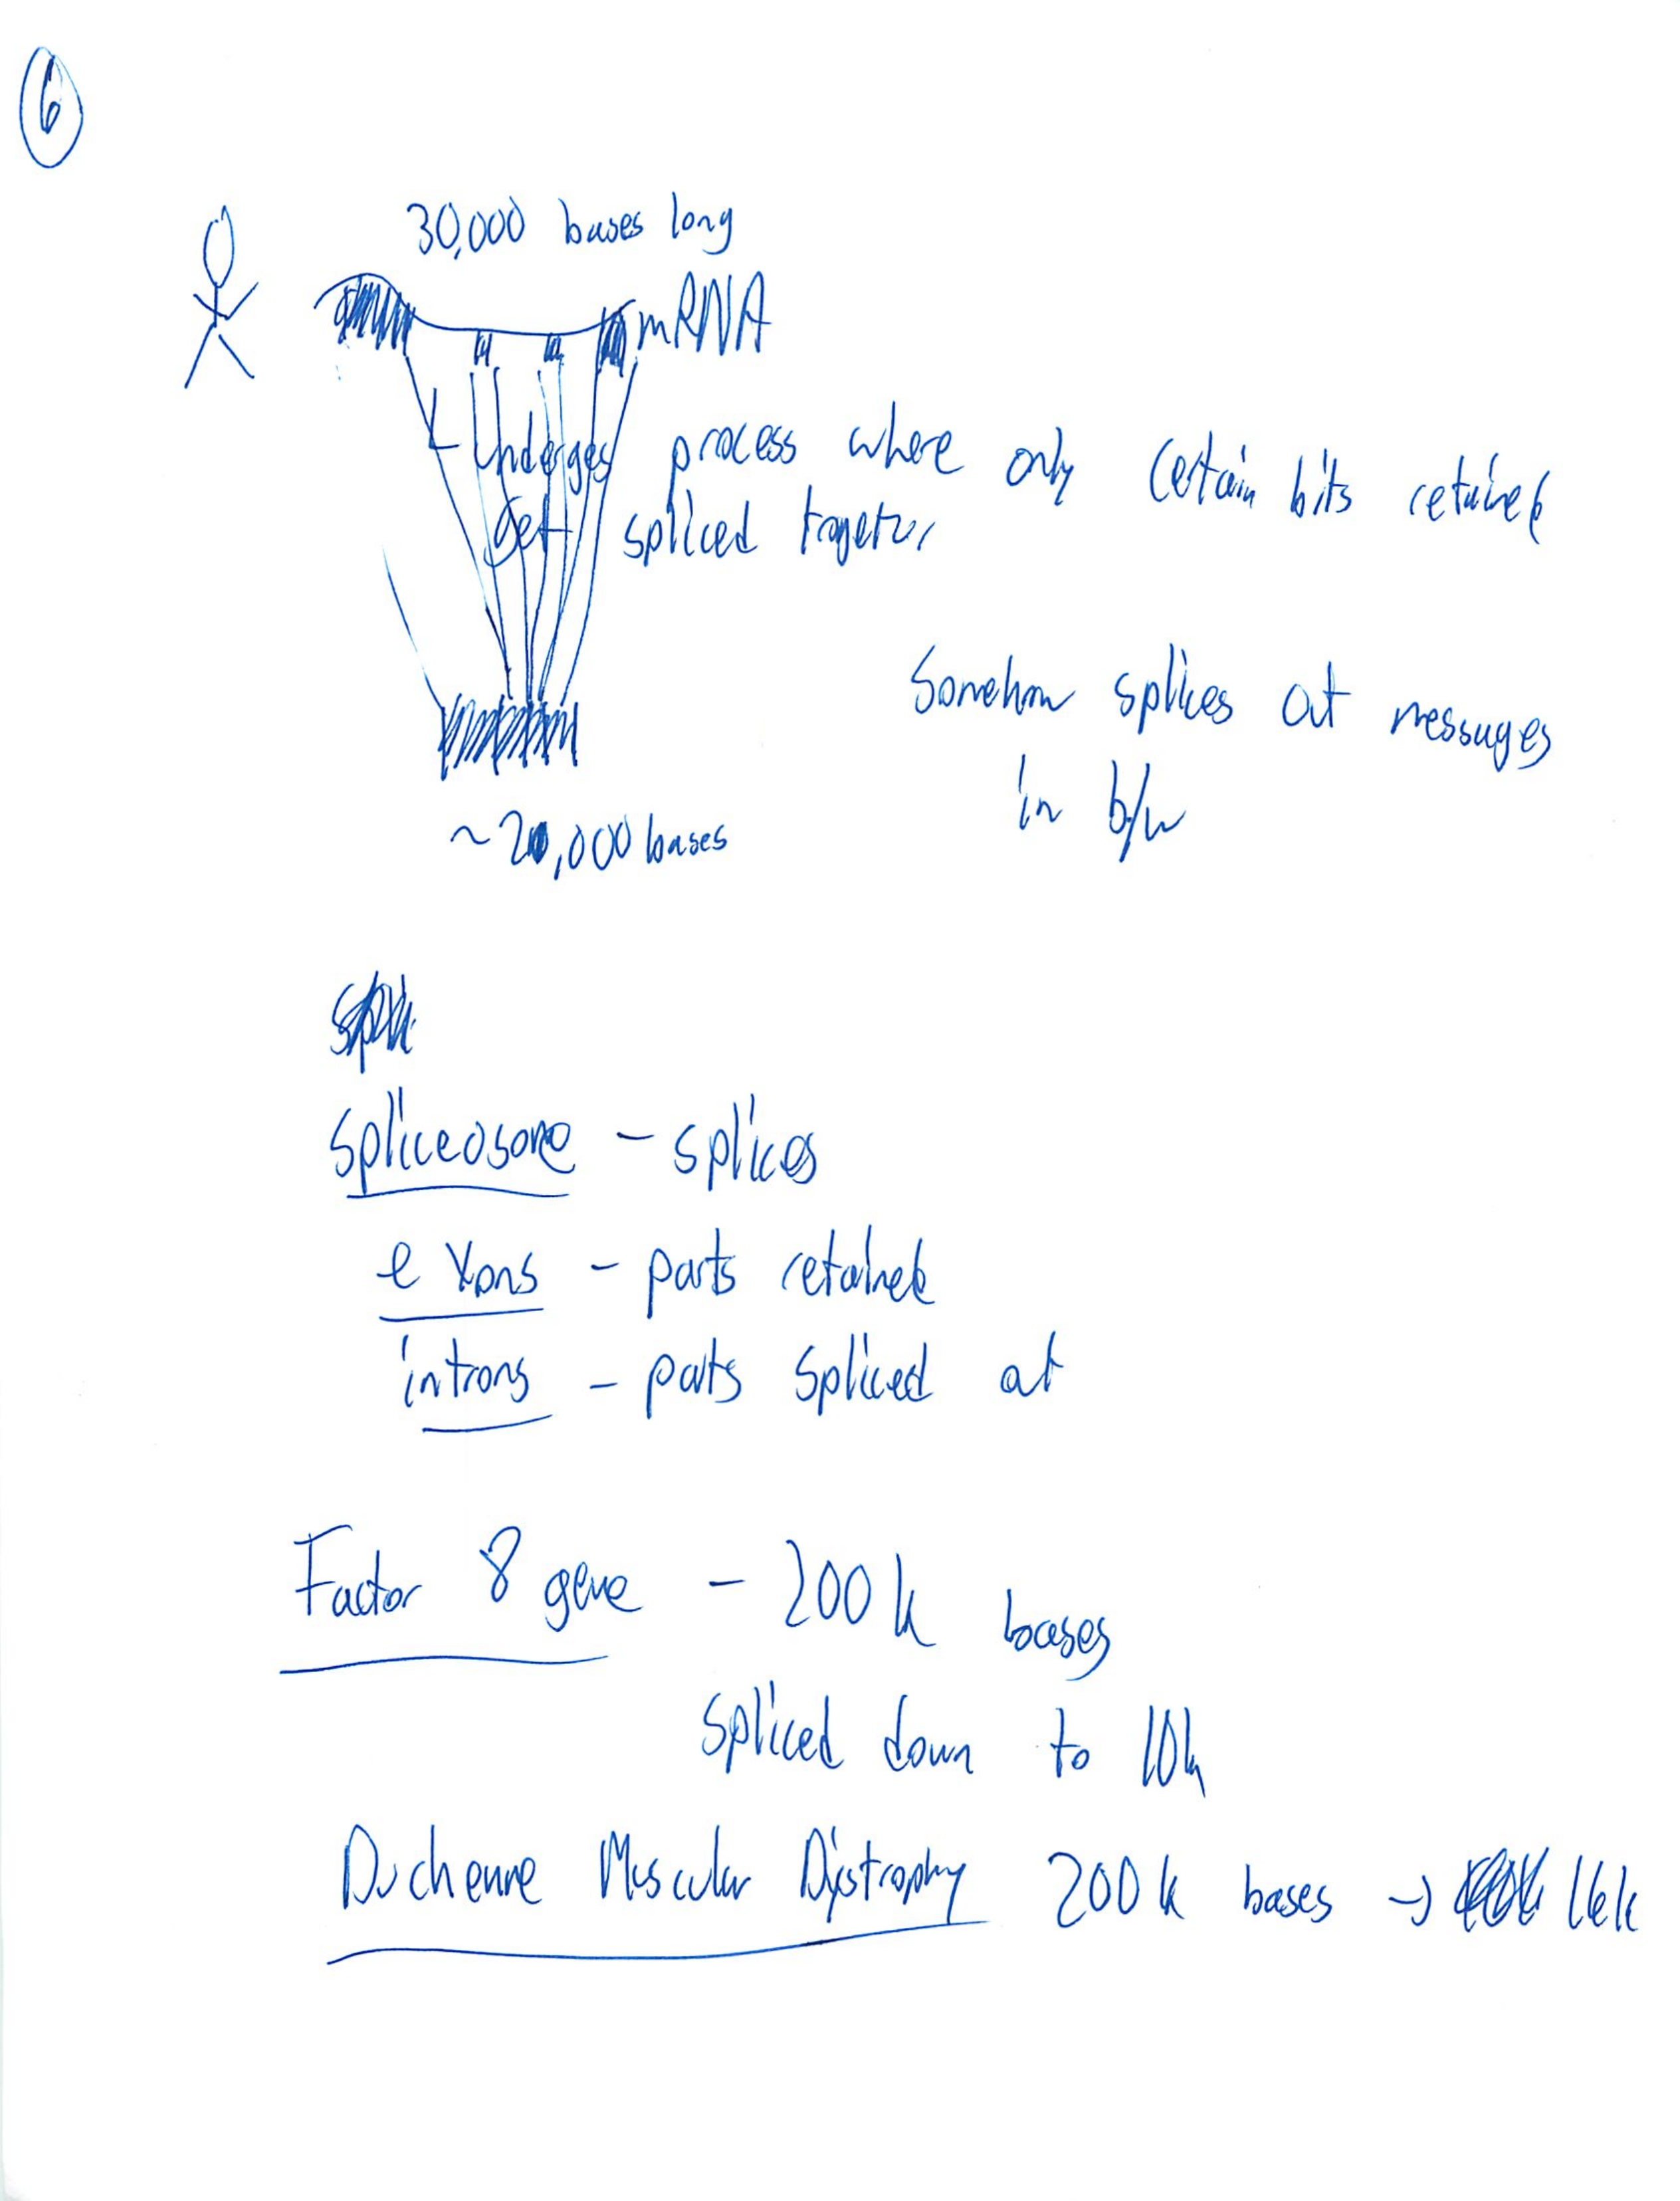 6
30,000 bases long
mRNA
undergoes process where only certain bits retained
Get spliced together
Somehow splices out messages
in b/w
~20,000 bases
Spliceosome - splices
exons - parts retained
introns - parts spliced out
Factor 8 gene - 200k bases
spliced down to 10k
Duchenne Muscular Dystrophy 200k bases → 16k